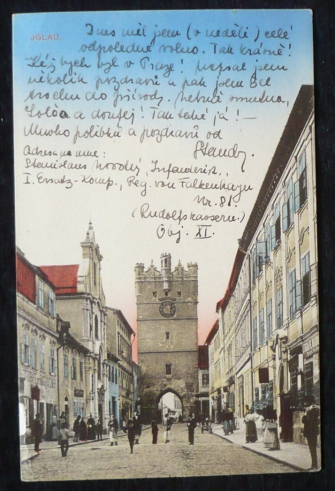 IGLAU.
Dnes měl jsem (v neděli) celé
odpoledne volno. Tak krásně!
bych byl v Praze! Napsal jsem
několik pozdravů a pak jsem šel
trochu do přírody. Nebuď smutna,
a doufej! Tak také já! —
Mnoho polibků a pozdravů od
Standy.
Adresa na mne:
Stanislaus Infanterist,
I. Ersatz-Komp., Reg. von Falkenhayn
Nr. 81.
(Rudolfskasern.)
Obj. XI.